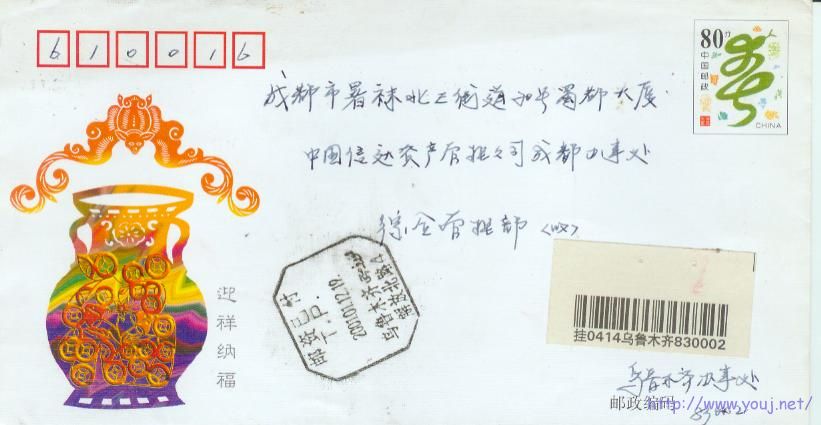 610016
80分
中国邮政
CHINA
成都市暑袜北三街道30号蜀都大厦
中国信达资产管理公司成都办事处
综合管理部 〈收〉
迎祥纳福
邮资已付
T.P.
2001.12.19.
乌鲁木齐
解放北路
挂0414乌鲁木齐830002
乌鲁木齐办事处
邮政编码
http://www.youj.net/